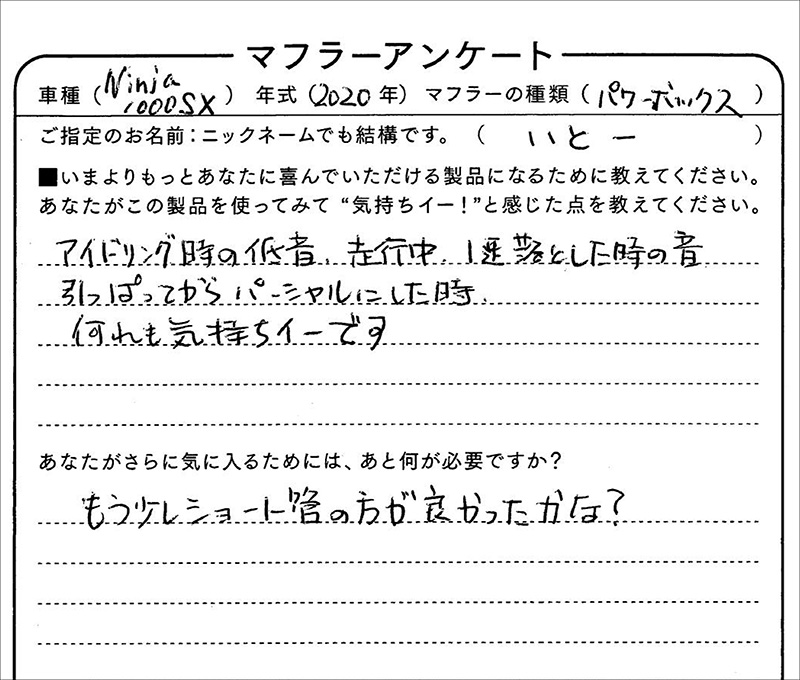 マフラーアンケート
車種（Ninja 1000SX）年式（2020年）マフラーの種類（パワーボックス）
ご指定のお名前：ニックネームでも結構です。（いとー）
■いまよりもっとあなたに喜んでいただける製品になるために教えてください。
あなたがこの製品を使ってみて“気持ちイー！”と感じた点を教えてください。
アイドリング時の低音、走行中、1速落とした時の音
引っぱってからパーシャルにした時、
何れも気持ちイーです
あなたがさらに気に入るためには、あと何が必要ですか？
もう少しショート管の方が良かったかな？